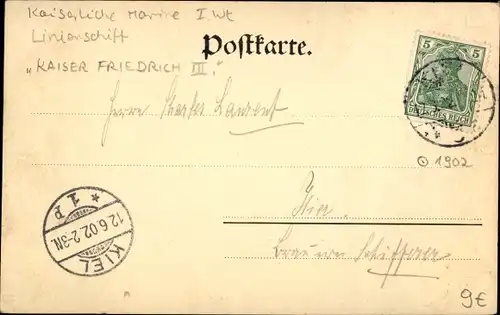 Kaiserliche Marine I. Wk
Linienschiff
"KAISER FRIEDRICH III."
Postkarte.
5
DEUTSCHES REICH
Herrn
1902
Hier
KIEL
12.6.02.2-3N.
* 1 P
9€